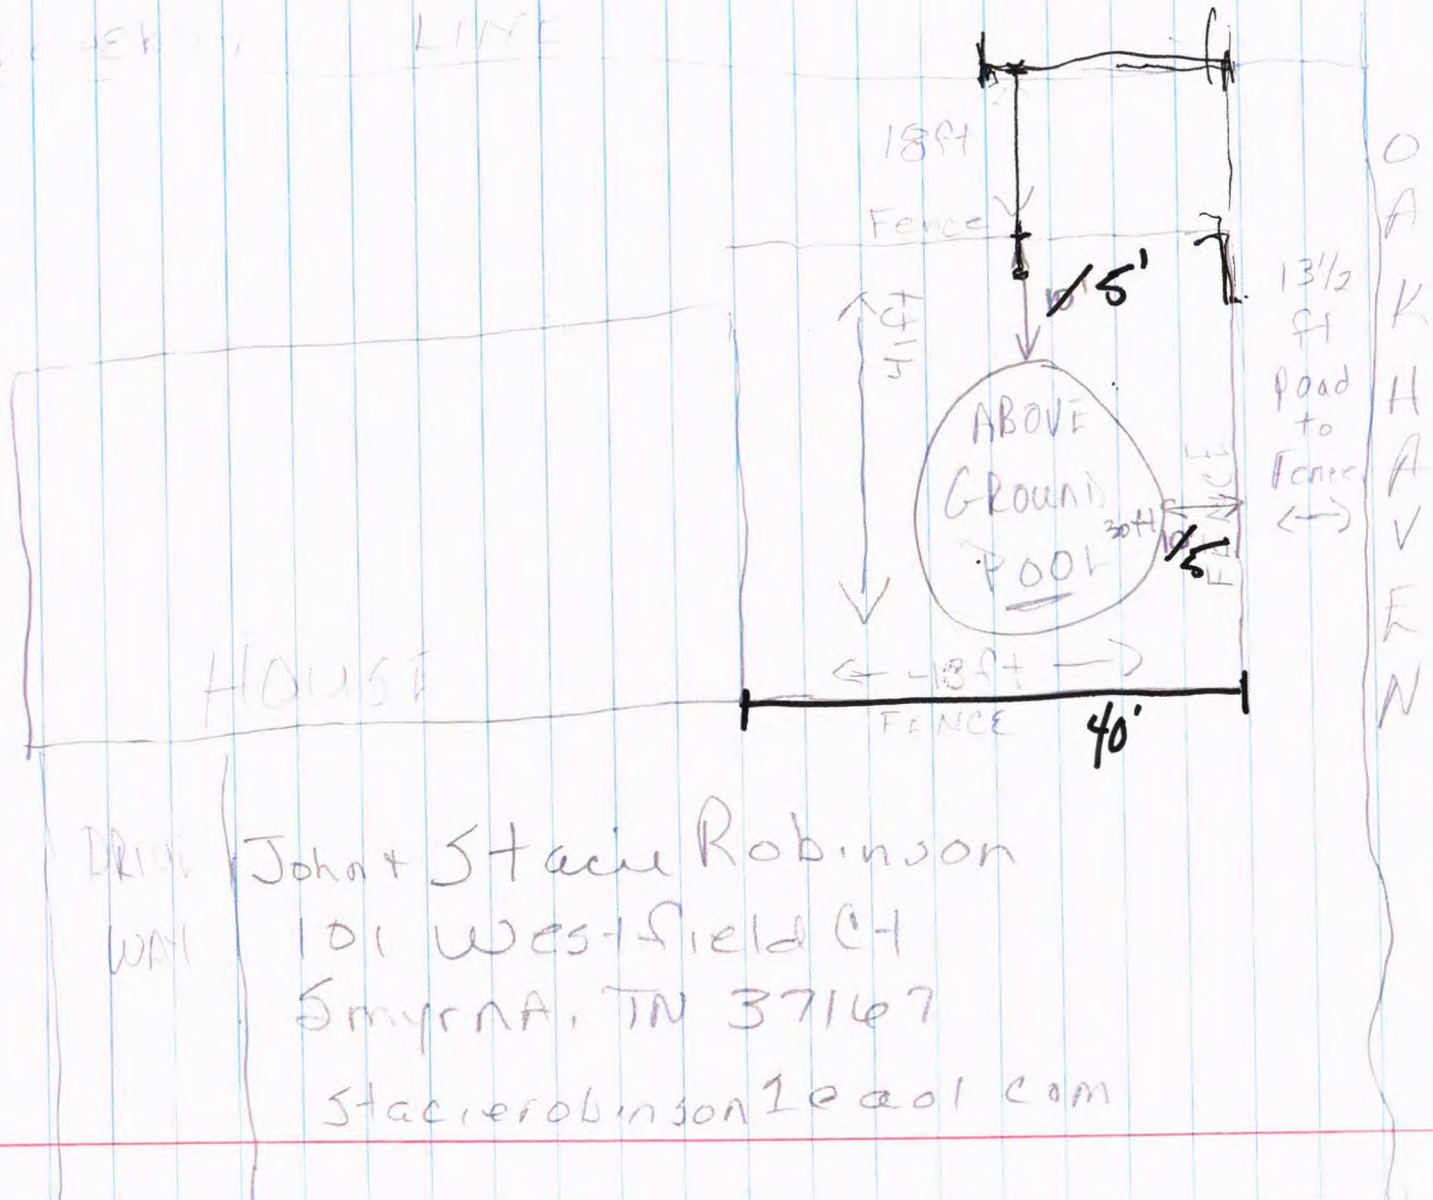 LINE
18ft
Fence
5'
41ft
13 1/2
ft
Road
to
Fence
OAKHAVEN
ABOVE
GROUND
POOL
30ft
10'
5
FENCE
HOUSE
FENCE
40'
DRIVE
WAY
John + Stacie Robinson
101 Westfield Ct
Smyrna, TN 37167
stacierobinson1@aol.com